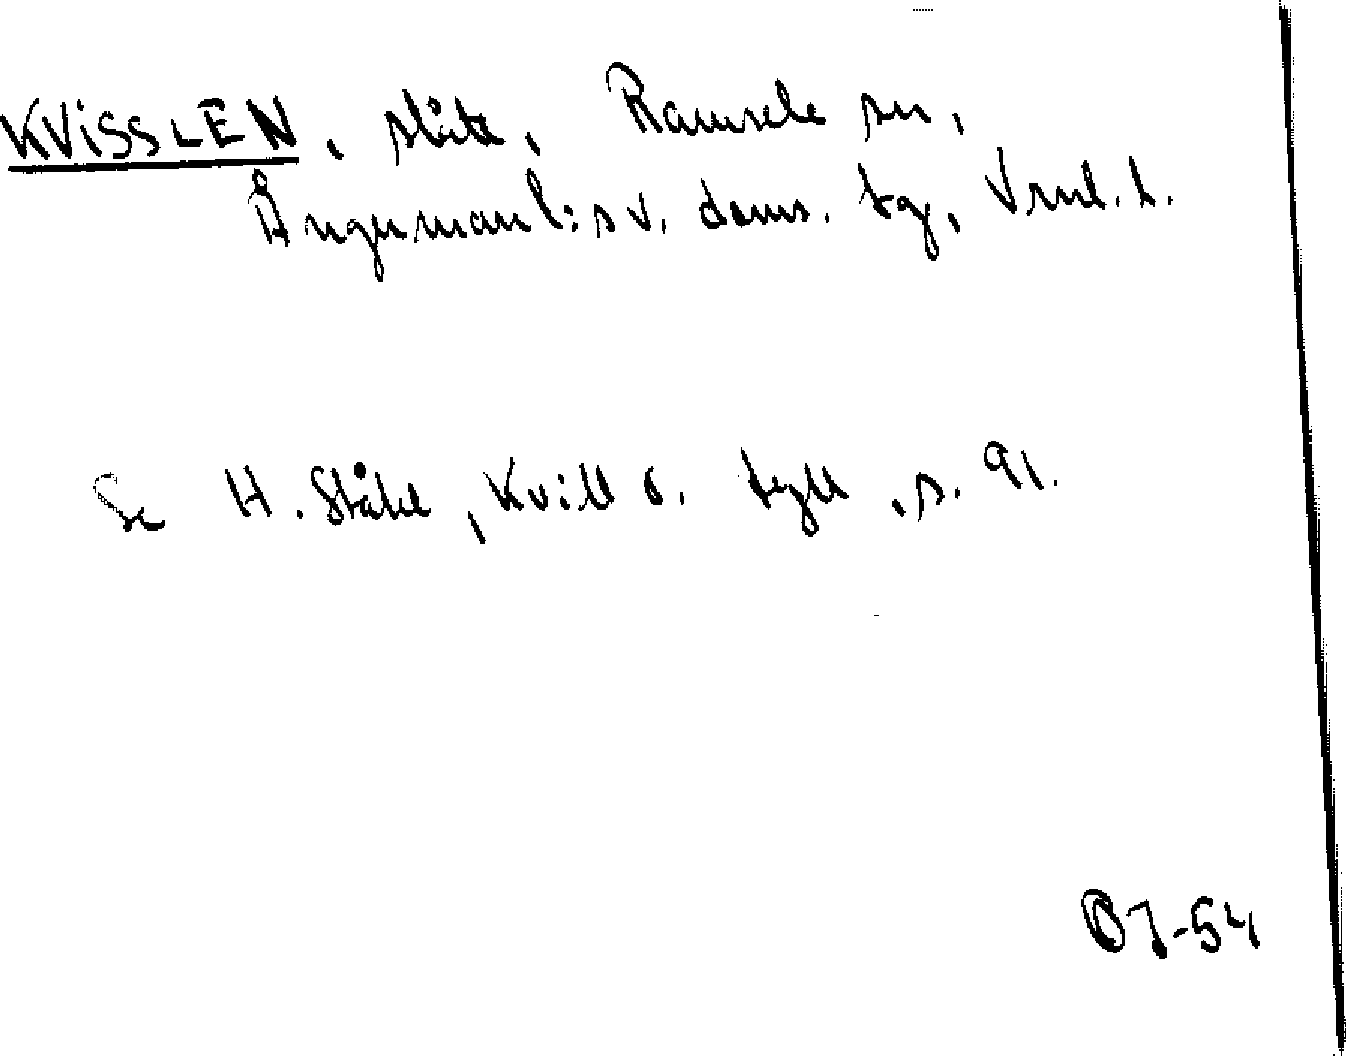 KVISSLEN, slått, Ramsele sn,
Ångermanl:s v. doms. tg, Vrnl. l.
Se H. Ståhl, Kvill o. tyll, s. 91.
OJ-54